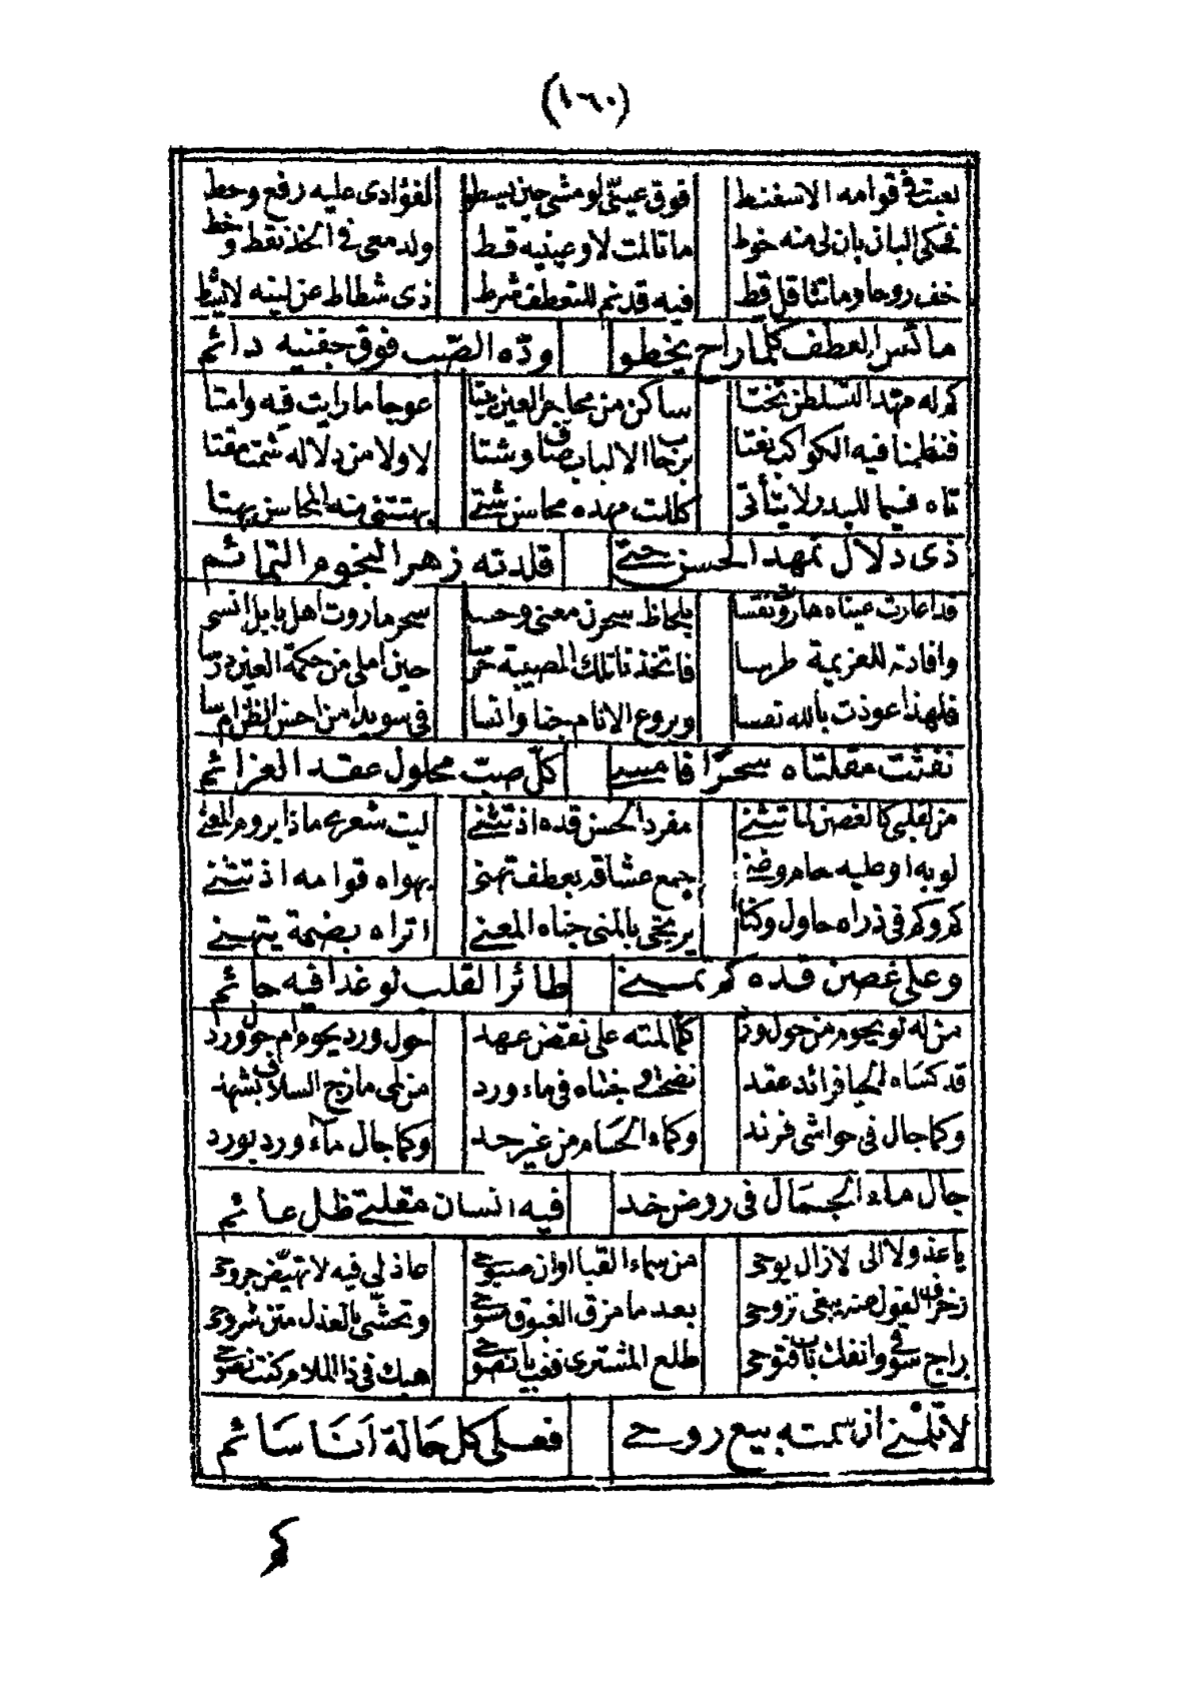 (١٦٠)
نعت في قوامه الاسفنط فوق عينى لو مشى حين يسطو لفؤادى عليه رفع وحط
فحكى البان بان لى منه خوط ما تالمت لا وعينيه قط ولدمعى في الخد نقط وخط
خف روحا وما تثاقل قط فيه قد تم للتعطف شرط ذى شطاط عن لينه لا يشط
مائس العطف كلما راح يخطو ودّه الصّب فوق جفنيه دائم
كم له مهد السلطن تختا ساكن من محاجر العين بيتا عوجا ما رايت فيه وامتا
فنظمنا فيه الكواكب نعتا الالباب وشتا لا ولا من دلاله شمت مقتا
تاه فيما للبدر لا يتأتى كللت مهده محاسن شتى بهتتنى منه المحاسن بهتا
ذى دلال تمهد الحسن حتى قلدته زهر النجوم التمائم
قد اعارت عيناه هاروت نفسا بلحاظ سحرن معنى وحسا سحر ماروت اهل بابل انسى
وافادته للعزيمة طرسا فاتخذنا تلك المصيبة حين املى من حكمة العين درسا
فلهذا عوذت بالله نفسا وبروع الانام جنا وانسا في سويدا من
نفثت مقلتاه سحرًا فامسى كلّ صبّ محلول عقد العزائم
من لقلبى كالغصن لما تثنى مفرد الحسن قده اذ تثنى ليت شعرى ماذا يروم المعنى
لو به او عليه حام وغنى جمع عشاقه بعطف تهنى بهواه قوامه اذ تثنى
كم وكم في ذراه حاول وكنا يرتجى بالمنى جناه المعنى اتراه بضمة يتهنى
وعلى غصن قده كم تمنى طائر القلب لو غدا فيه حائم
من له لو يحوم من حول ورد كلما لمته على نقض عهد حول ورد يحوم ام حول ورد
قد كساه الحيا فرائد عقد نضحت وجنتاه في ماء ورد من لمى مازج السلاف بشهد
وكما جال في حواشى فرند وكماء الحسام من غير حد وكما جال مآء ورد بورد
جال ماء الجمال في روض خد فيه انسان مقلتى ظل عائم
يا عذولا الى لازال يوحى من سماء القبا اوان صبوحى عاذلى فيه لا تهيّض جروحى
زخرف القول عنه يبغى نزوحى بعد ما مزق الغبوق مسوحى وتحشّى بالعذل متن شروحى
راج سوقى وانفك باب فتوحى طلع المشترى فغب يا نصوحى هبك في ذا الملام كنت نصوحى
لا تلمنى ان سمته بيع روحى فعلى كل حالة اَنَا سَائم